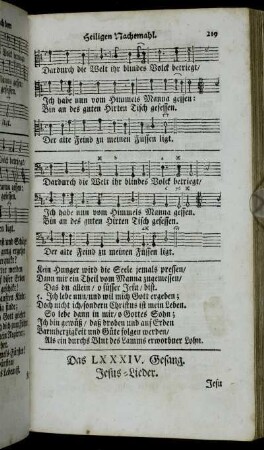 Heiligen Nachtmahl.
219
Dardurch die Welt ihr blindes Volck betriegt/
Ich habe nun vom Himmels Manna gessen:
Bin an des guten Hirten Tisch gesessen.
Der alte Feind zu meinen Füssen ligt.
Dardurch die Welt ihr blindes Volck betriegt/
Ich habe nun vom Himmels Manna gessen.
Bin an des guten Hirten Tisch gesessen.
Der alte Feind zu meinen Füssen ligt.
Kein Hunger wird die Seele jemals pressen/
Dann mir ein Theil vom Manna zugemessen/
Das du allein/ o süsser Jesu/ bist.
5. Ich lebe nun/ und wil mich Gott ergeben;
Doch nicht ich/ sondern Christus ist mein Leben.
So lebe dann in mir/ o Gottes Sohn;
Ich bin gewüß/ daß droben und auf Erden
Barmherzigkeit und Güte folgen werden/
Als ein durchs Blut des Lamms erworbner Lohn.
Das LXXXIV. Gesang.
Jesus-Lieder.
Jesu